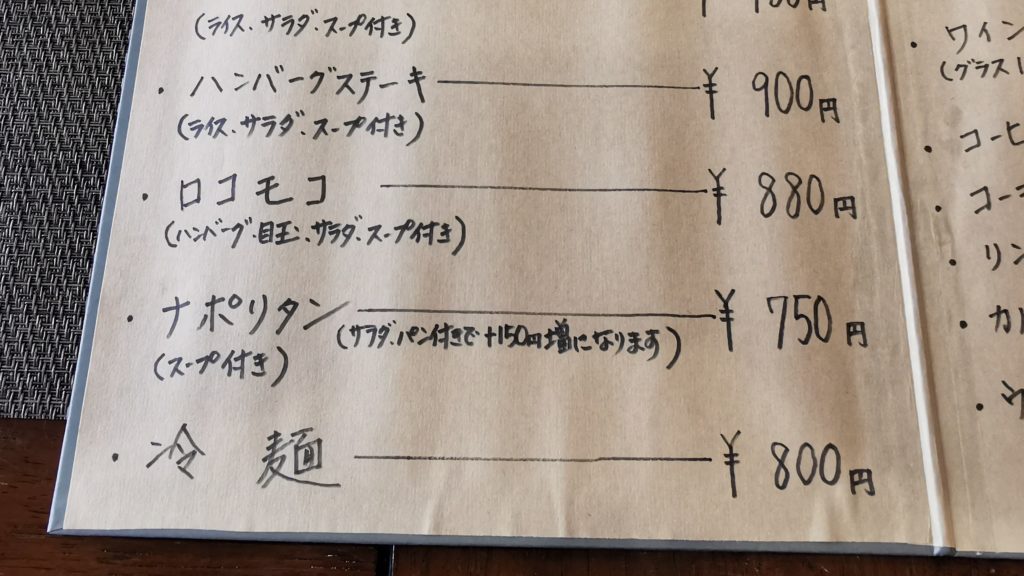 円
(ライス、サラダ、スープ付き)
・ハンバーグステーキ ―― ¥900円
(ライス、サラダ、スープ付き)
・ロコモコ ―― ¥880円
(ハンバーグ、目玉、サラダ、スープ付き)
・ナポリタン ―― ¥750円
(サラダ、パン付きで+150円増になります)
(スープ付き)
・冷 麺 ―― ¥800円
・ワイン
(グラス
・コーヒ
・コー
・リン
・カル